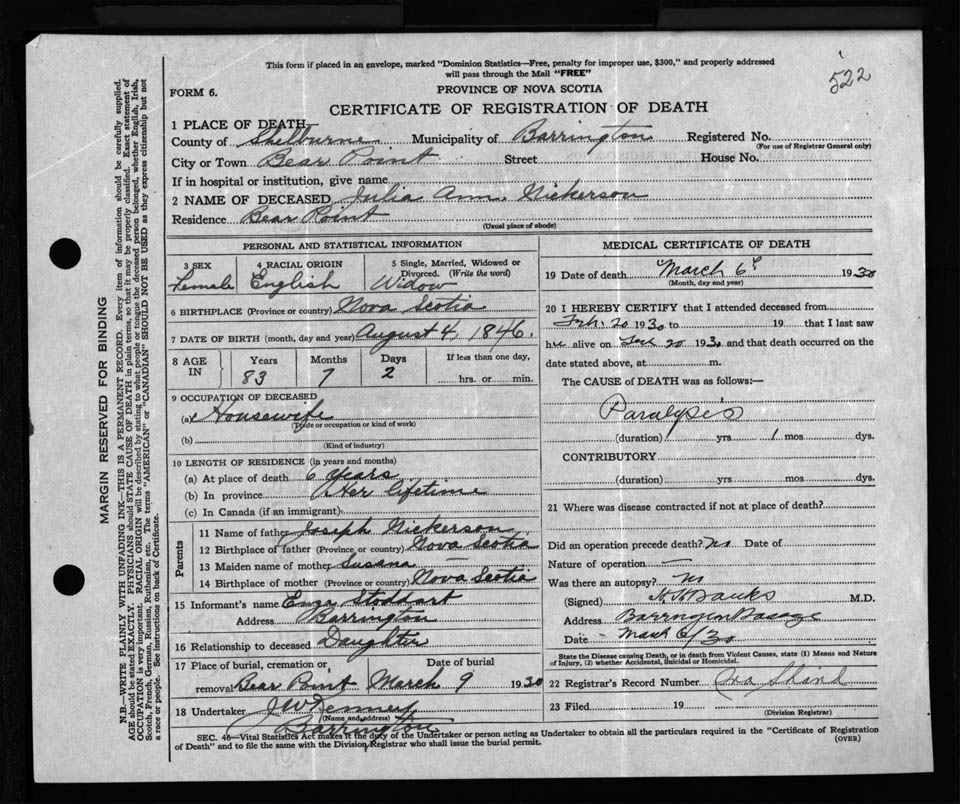 522
This form if placed in an envelope, marked "Dominion Statistics—Free, penalty for improper use, $300," and properly addressed
will pass through the Mail "FREE"
FORM 6.
PROVINCE OF NOVA SCOTIA
CERTIFICATE OF REGISTRATION OF DEATH
1 PLACE OF DEATH—
County of Shelburne Municipality of Barrington Registered No.
(For use of Registrar General only)
City or Town Bear Point Street House No.
If in hospital or institution, give name
2 NAME OF DECEASED Julia Ann Nickerson
Residence Bear Point
(Usual place of abode)
PERSONAL AND STATISTICAL INFORMATION
3 SEX Female
4 RACIAL ORIGIN English
5 Single, Married, Widowed or
Divorced. (Write the word)
Widow
6 BIRTHPLACE (Province or country) Nova Scotia
7 DATE OF BIRTH (month, day and year) August 4, 1846.
8 AGE IN Years Months Days If less than one day,
83 7 2 hrs. or min.
9 OCCUPATION OF DECEASED
(a) Housewife
(Trade or occupation or kind of work)
(b)
(Kind of industry)
10 LENGTH OF RESIDENCE (in years and months)
(a) At place of death 6 Years
(b) In province Her lifetime
(c) In Canada (if an immigrant)
Parents
11 Name of father Joseph Nickerson
12 Birthplace of father (Province or country) Nova Scotia
13 Maiden name of mother Susana —
14 Birthplace of mother (Province or country) Nova Scotia
15 Informant's name Stoddart
Address Barrington
16 Relationship to deceased Daughter
17 Place of burial, cremation or
removal Bear Point
Date of burial
March 9 1930
18 Undertaker
(Name and address)
Barrington
MEDICAL CERTIFICATE OF DEATH
19 Date of death March 6 1930
(Month, day and year)
20 I HEREBY CERTIFY that I attended deceased from
Feb. 20 1930 to 19 that I last saw
her alive on Feb 20 1930 and that death occurred on the
date stated above, at m.
The CAUSE of DEATH was as follows:—
Paralysis
(duration) yrs 1 mos dys.
CONTRIBUTORY
(duration) yrs mos dys.
21 Where was disease contracted if not at place of death?
Did an operation precede death? no Date of
Nature of operation —
Was there an autopsy? no
(Signed) Banks M.D.
Address Barrington Passage
Date March 6/30
State the Disease causing Death, or in death from Violent Causes, state (1) Means and Nature
of Injury, (2) whether Accidental, Suicidal or Homicidal.
22 Registrar's Record Number
23 Filed 19
(Division Registrar)
SEC. 46—Vital Statistics Act makes it the duty of the Undertaker or person acting as Undertaker to obtain all the particulars required in the "Certificate of Registration
of Death" and to file the same with the Division Registrar who shall issue the burial permit.
(OVER)
MARGIN RESERVED FOR BINDING
N.B.—WRITE PLAINLY WITH UNFADING INK—THIS IS A PERMANENT RECORD. Every item of information should be carefully supplied.
AGE should be stated EXACTLY. PHYSICIANS should STATE CAUSE OF DEATH in plain terms, so that it may be properly classified. Exact statement of
OCCUPATION is very important. RACIAL ORIGIN will be described by stating to what people or tongue the deceased person belonged, whether English, Irish,
Scotch, French, German, Russian, Ruthenian, etc. The terms "AMERICAN" or "CANADIAN" SHOULD NOT BE USED as they express citizenship but not
a race or people. See instructions on back of Certificate.